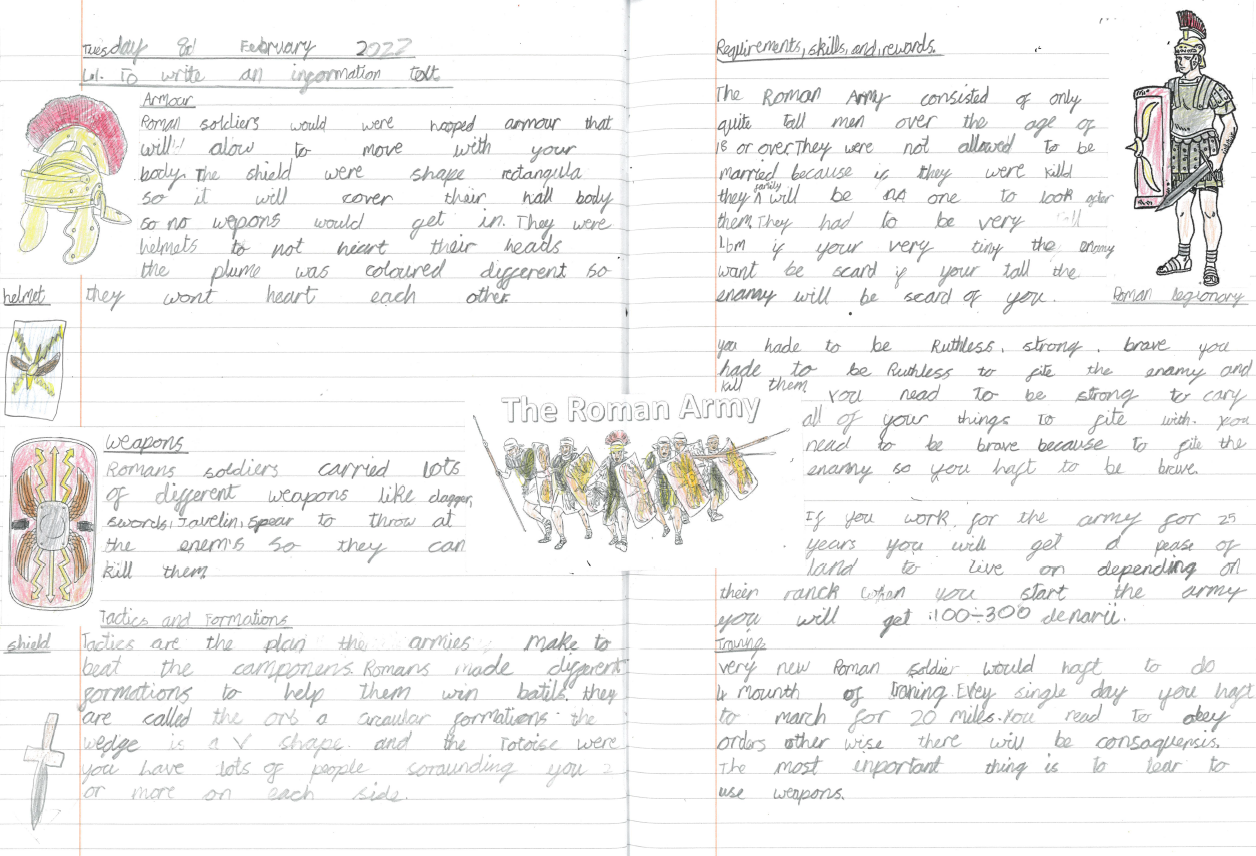 Tuesday 8d February 2022
L.O. To write an information text
Armour
Roman soldiers would were hooped armour that
will alow to move with your
body. The shield were shape rectangula
so it will cover their hall body
so no wepons would get in. They were
helmets to not heart their heads
the plume was coloured different so
they wont heart each other
helmet
Weapons
Romans soldiers carried lots
of different weapons like dagger,
swords, Javelin, spear to throw at
the enem's so they can
kill them
Tactics and Formations
shield
Tactics are the plan the armies make to
beat the camponens. Romans made different
formations to help them win batils. they
are called the orb a circular formations the
wedge is a V shape. and the Totoise were
you have lots of people sorounding you 2
or more on each side.
The Roman Army
Requirements, skills, and, rewards.
The Roman Army consisted of only
quite tall men over the age of
18 or over. They were not allowed to be
married because if they were killd
they family will be no one to look after
them. They had to be very tall
1.6m if your very tiny the enamy
want be scard if your tall the
enamy will be scard of you.
Roman legionary
you hade to be Ruthless, strong, brave you
hade to be Ruthless to fite the enamy and
kill them You nead to be strong to cary
all of your things to fite with. You
nead to be brave because to fite the
enamy so you haft to be brave.
If you work for the army for 25
years you will get a pease of
land to live on depending on
their ranck when you start the army
you will get 100÷300 denarii.
Training
very new Roman soldier would haft to do
4 mounth of traning. Evey single day you haft
to march for 20 miles. You nead to obey
orders other wise there will be consaquensis.
The most inportant thing is to lear to
use weapons.